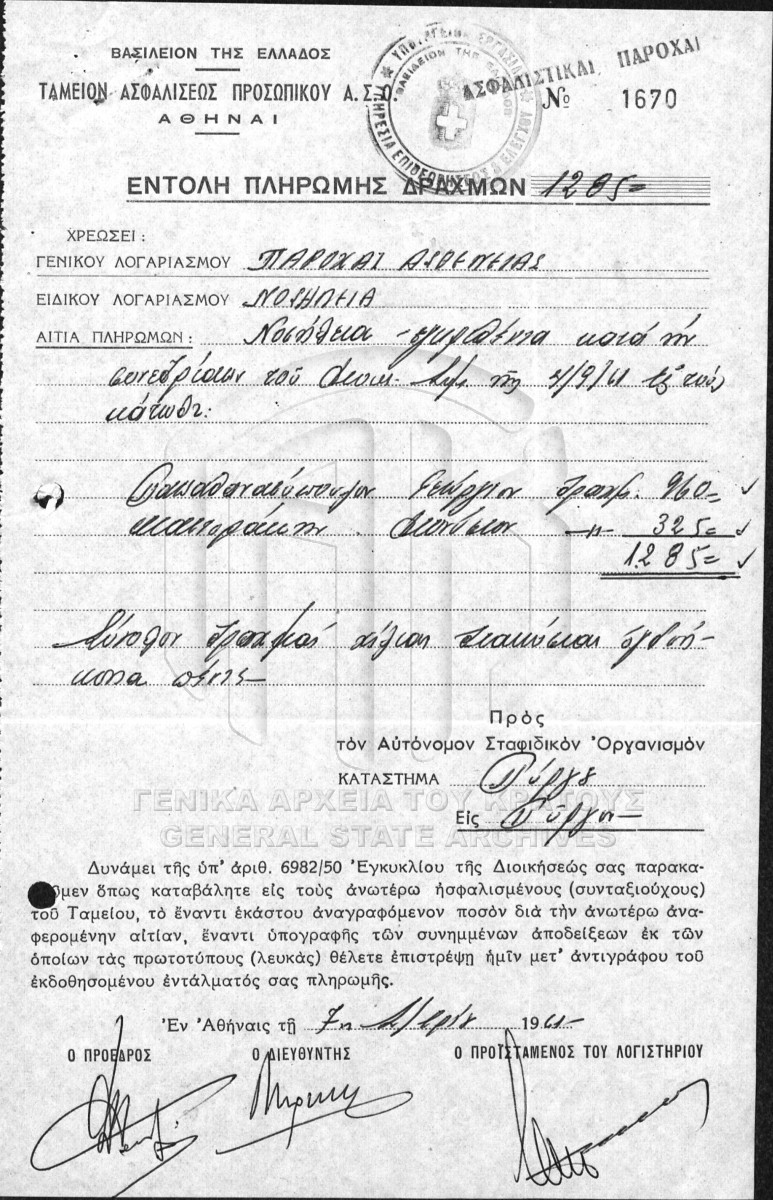 ΒΑΣΙΛΕΙΟΝ ΤΗΣ ΕΛΛΑΔΟΣ
ΤΑΜΕΙΟΝ ΑΣΦΑΛΙΣΕΩΣ ΠΡΟΣΩΠΙΚΟΥ Α.Σ.Ο.
ΑΘΗΝΑΙ
ΑΣΦΑΛΙΣΤΙΚΑΙ ΠΑΡΟΧΑΙ
№ 1670
ΕΝΤΟΛΗ ΠΛΗΡΩΜΗΣ ΔΡΑΧΜΩΝ 1285=
ΧΡΕΩΣΕΙ :
ΓΕΝΙΚΟΥ ΛΟΓΑΡΙΑΣΜΟΥ ΠΑΡΟΧΑΙ ΑΣΘΕΝΕΙΑΣ
ΕΙΔΙΚΟΥ ΛΟΓΑΡΙΑΣΜΟΥ ΝΟΣΗΛΕΙΑ
ΑΙΤΙΑ ΠΛΗΡΩΜΩΝ : Νοσήλεια κατά την
συνεδρίασιν του της 4/9/61 εξ τους
κάτωθι:
Παπαθανασόπουλον Γεώργιον δραχμ. 960= ✓
Διονύσιον -〃- 325= ✓
1285= ✓
Σύνολον δραχμαί χίλιαι διακόσιαι ὀγδοή-
κοντα πέντε
Πρὸς
τὸν Αὐτόνομον Σταφιδικὸν Ὀργανισμόν
ΚΑΤΑΣΤΗΜΑ Πύργου
Εἰς Πύργον
ΓΕΝΙΚΑ ΑΡΧΕΙΑ ΤΟΥ ΚΡΑΤΟΥΣ
GENERAL STATE ARCHIVES
Δυνάμει τῆς ὑπ' ἀριθ. 6982/50 Ἐγκυκλίου τῆς Διοικήσεώς σας παρακα-
οῦμεν ὅπως καταβάλητε εἰς τοὺς ἀνωτέρω ἠσφαλισμένους (συνταξιούχους)
τοῦ Ταμείου, τὸ ἔναντι ἑκάστου ἀναγραφόμενον ποσὸν διὰ τὴν ἀνωτέρω ἀνα-
φερομένην αἰτίαν, ἔναντι ὑπογραφῆς τῶν συνημμένων ἀποδείξεων ἐκ τῶν
ὁποίων τὰς πρωτοτύπους (λευκὰς) θέλετε ἐπιστρέψῃ ἡμῖν μετ' ἀντιγράφου τοῦ
ἐκδοθησομένου ἐντάλματός σας πληρωμῆς.
Ἐν Ἀθήναις τῇ 7η 7/βρίου 1961
Ο ΠΡΟΕΔΡΟΣ Ο ΔΙΕΥΘΥΝΤΗΣ Ο ΠΡΟΪΣΤΑΜΕΝΟΣ ΤΟΥ ΛΟΓΙΣΤΗΡΙΟΥ